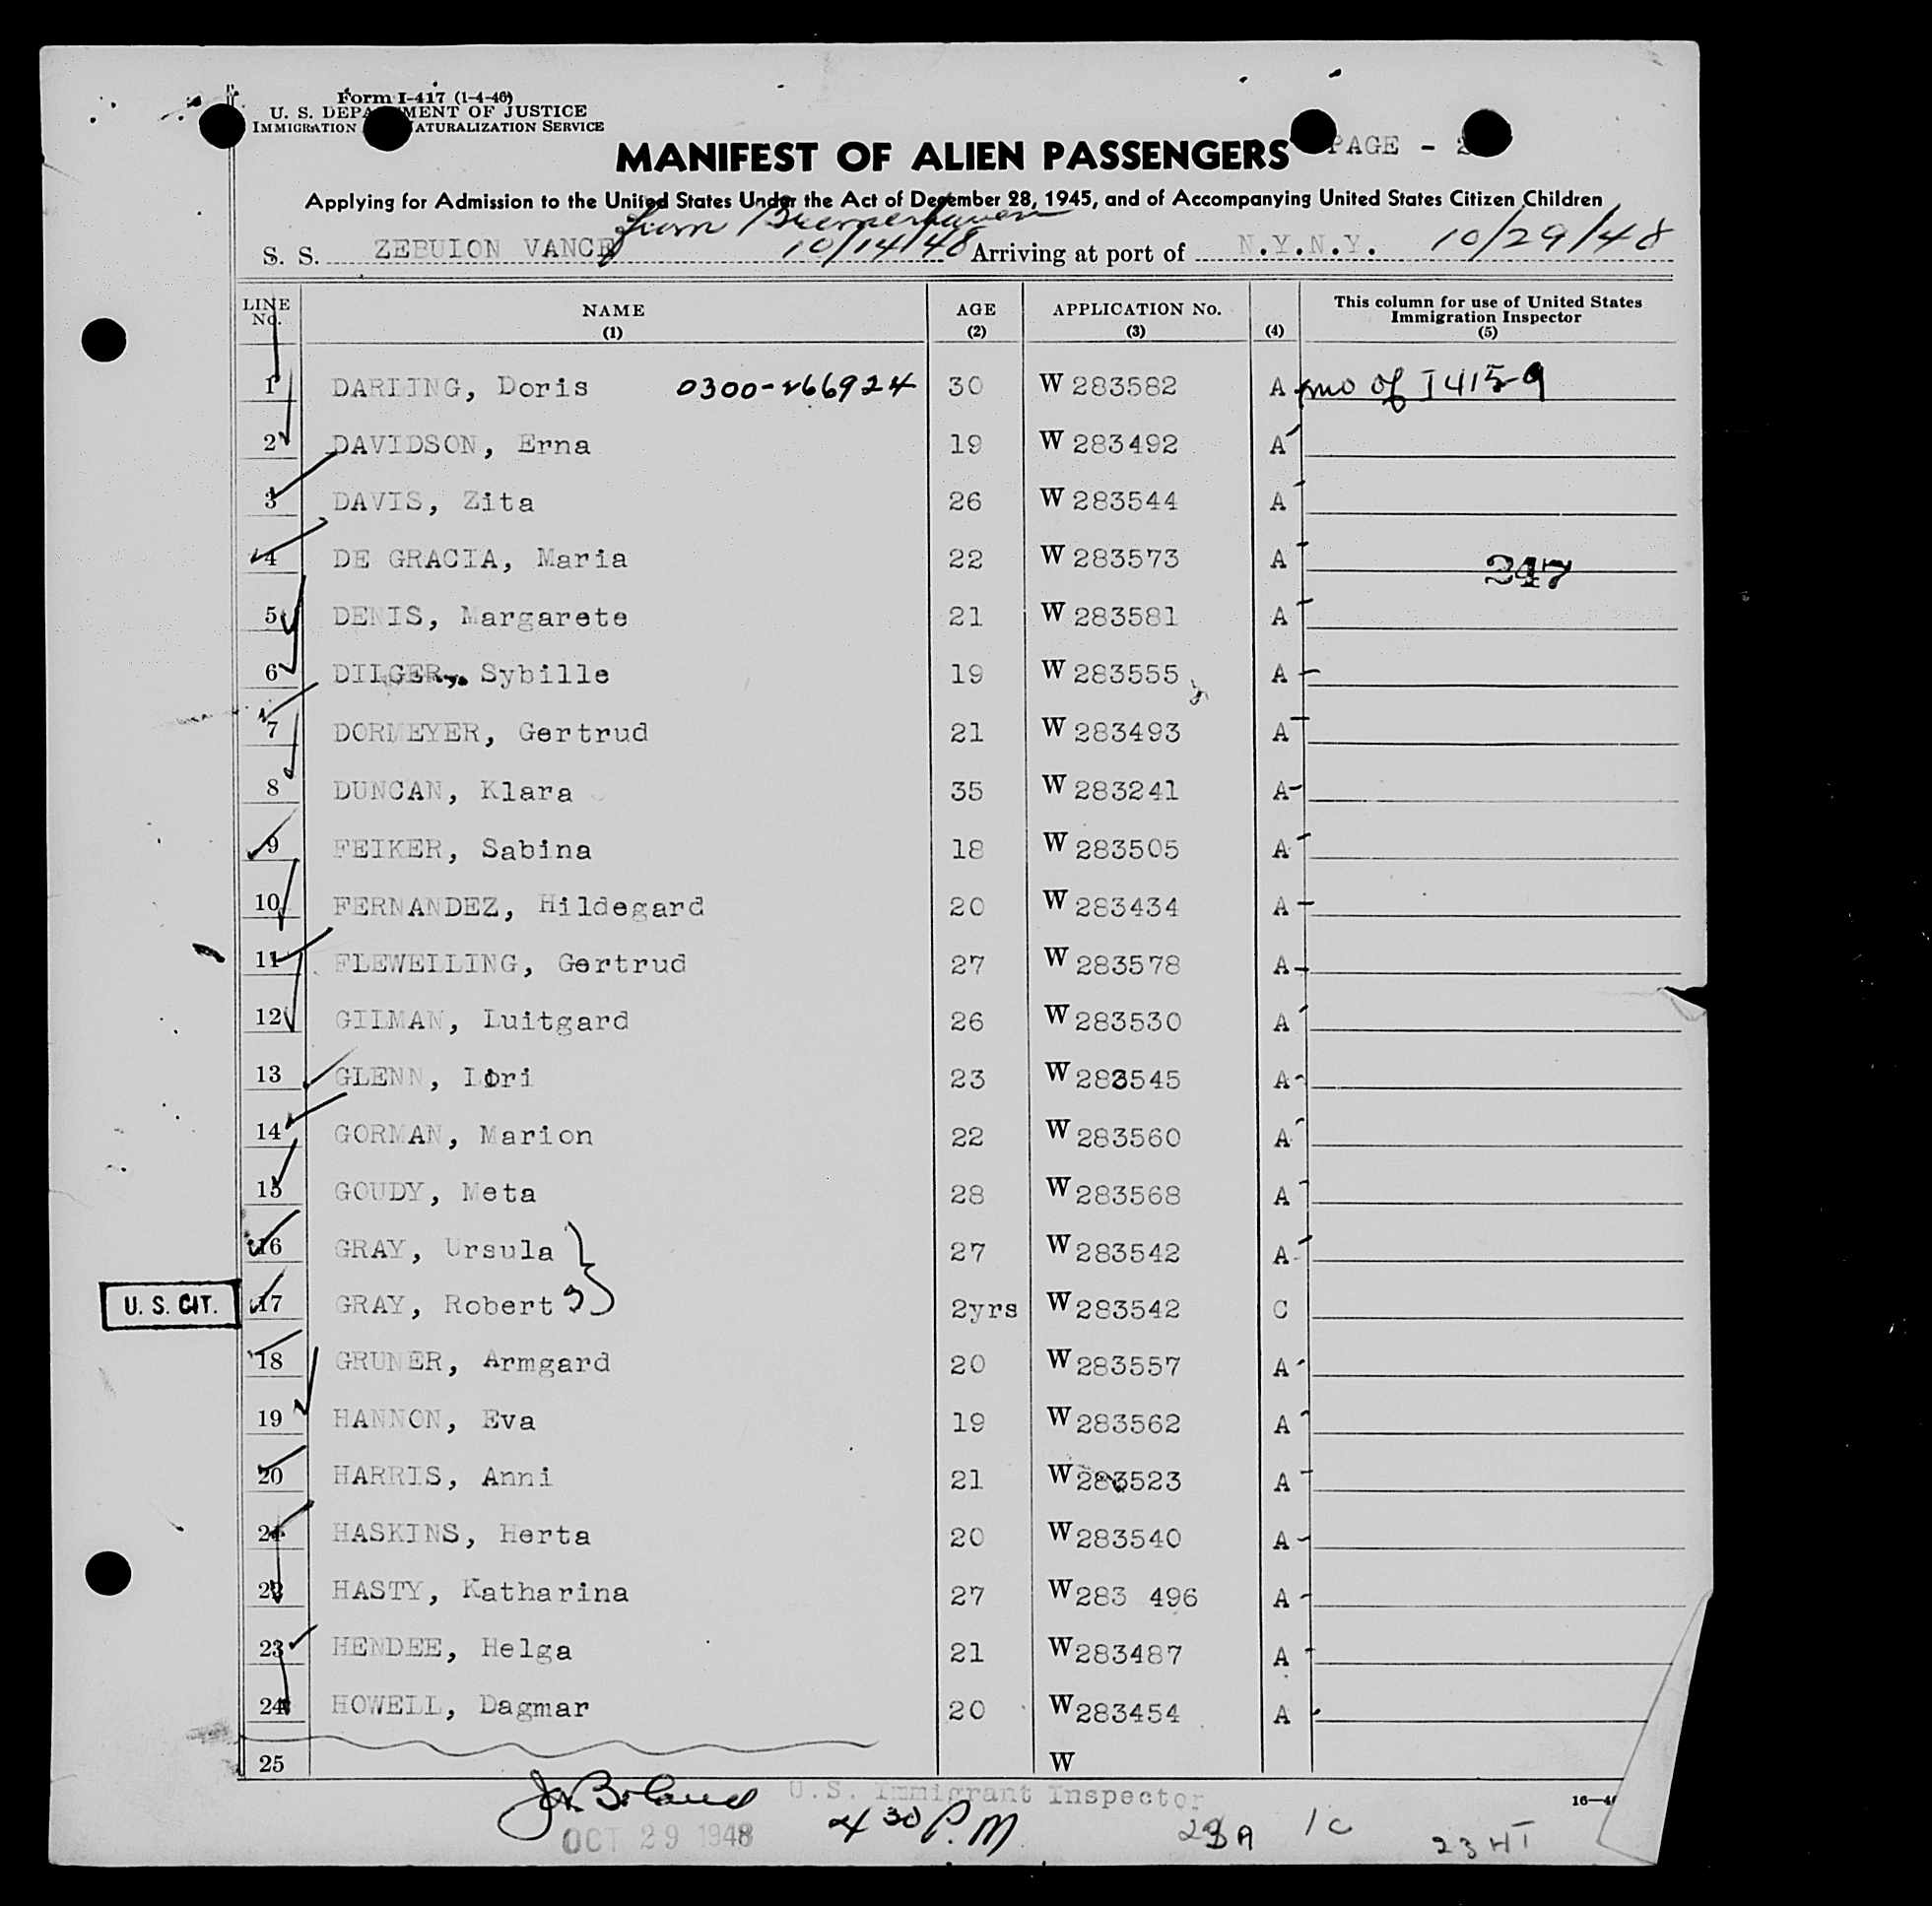 Form I-417 (1-4-46)
U. S. DEPARTMENT OF JUSTICE
IMMIGRATION NATURALIZATION SERVICE
MANIFEST OF ALIEN PASSENGERS PAGE - 2
Applying for Admission to the United States Under the Act of December 28, 1945, and of Accompanying United States Citizen Children
from Bremerhaven
S. S. ZEBULON VANCE 10/14/48 Arriving at port of N.Y.N.Y. 10/29/48
LINE No. NAME (1) AGE (2) APPLICATION No. (3) (4) This column for use of United States Immigration Inspector (5)
1 DARLING, Doris 0300-266924 30 W 283582 A mo of I 415-9
2 DAVIDSON, Erna 19 W 283492 A
3 DAVIS, Zita 26 W 283544 A
4 DE GRACIA, Maria 22 W 283573 A 247
5 DENIS, Margarete 21 W 283581 A
6 DILGER, Sybille 19 W 283555 A
7 DORMEYER, Gertrud 21 W 283493 A
8 DUNCAN, Klara 35 W 283241 A
9 FEIKER, Sabina 18 W 283505 A
10 FERNANDEZ, Hildegard 20 W 283434 A
11 FLEWELLING, Gertrud 27 W 283578 A
12 GILMAN, Luitgard 26 W 283530 A
13 GLENN, Lori 23 W 283545 A
14 GORMAN, Marion 22 W 283560 A
15 GOUDY, Meta 28 W 283568 A
16 GRAY, Ursula 27 W 283542 A
U. S. CIT. 17 GRAY, Robert 2yrs W 283542 C
18 GRUNER, Armgard 20 W 283557 A
19 HANNON, Eva 19 W 283562 A
20 HARRIS, Anni 21 W 283523 A
21 HASKINS, Herta 20 W 283540 A
22 HASTY, Katharina 27 W 283 496 A
23 HENDEE, Helga 21 W 283487 A
24 HOWELL, Dagmar 20 W 283454 A
25 W
Boland U.S. Immigrant Inspector
OCT 29 1948 4 30 P.M 23 A 1 C 23 HT